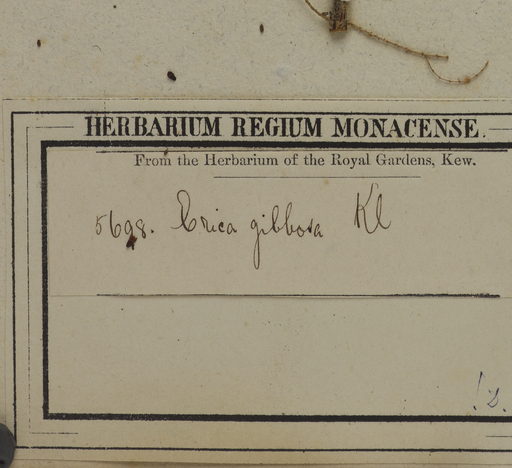 HERBARIUM REGIUM MONACENSE.
From the Herbarium of the Royal Gardens, Kew.
5698. Erica gibbosa Kl